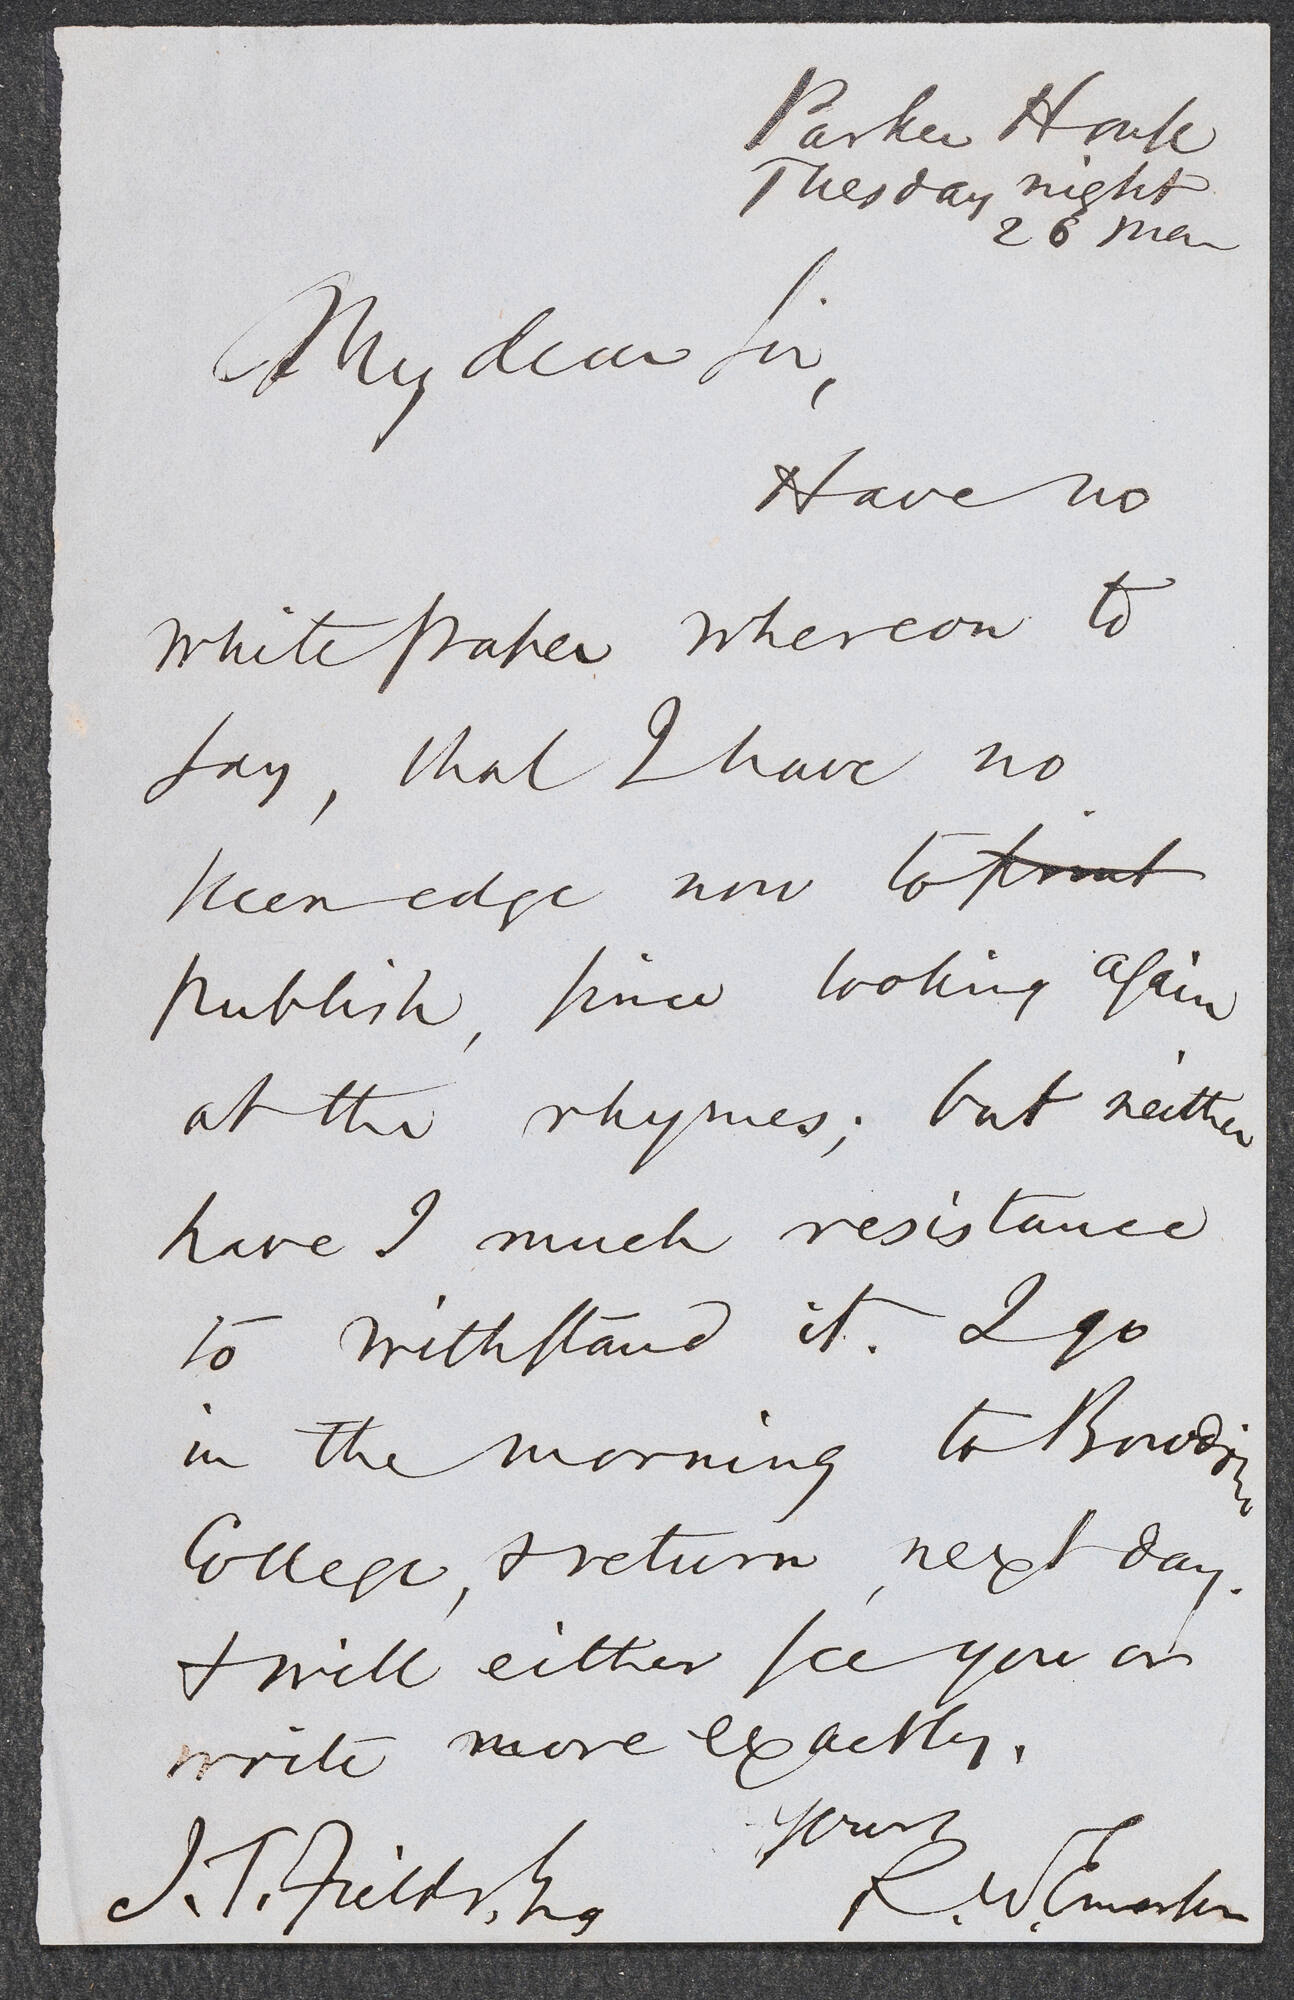 Parker House
Tuesday night
26 Mar
My dear Sir,
Have no
white paper whereon to
say, that I have no
keen edge now to print
publish, since looking again
at the rhymes; but neither
have I much resistance
to withstand it. I go
in the morning to Bowdoin
College, & return next day.
& will either see you or
write more exactly.
Yours
R. W. Emerson
J. T. Fields, Esq